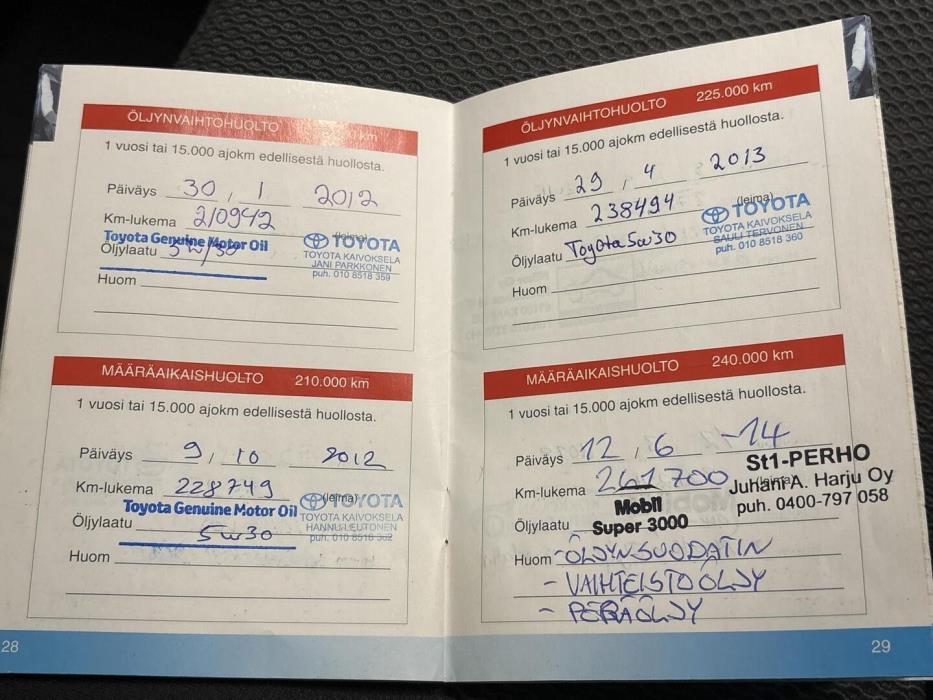 ÖLJYNVAIHTOHUOLTO km
1 vuosi tai 15.000 ajokm edellisestä huollosta.
Päiväys 30, 1 2012
Km-lukema 210942
Toyota Genuine Motor Oil
Öljylaatu 5w/30
(leima)
TOYOTA
TOYOTA KAIVOKSELA
JANI PARKKONEN
puh. 010 8518 359
Huom
MÄÄRÄAIKAISHUOLTO 210.000 km
1 vuosi tai 15.000 ajokm edellisestä huollosta.
Päiväys 9, 10 2012
Km-lukema 228749
Toyota Genuine Motor Oil
Öljylaatu 5w30
(leima)
TOYOTA
TOYOTA KAIVOKSELA
HANNU LEUTONEN
puh. 010 8518 362
Huom
28
ÖLJYNVAIHTOHUOLTO 225.000 km
1 vuosi tai 15.000 ajokm edellisestä huollosta.
Päiväys 29, 4 2013
Km-lukema 238494
Öljylaatu Toyota 5w30
(leima)
TOYOTA
TOYOTA KAIVOKSELA
SAULI TERVONEN
puh. 010 8518 360
Huom
MÄÄRÄAIKAISHUOLTO 240.000 km
1 vuosi tai 15.000 ajokm edellisestä huollosta.
Päiväys 12, 6 -14
Km-lukema 261700
(leima)
St1-PERHO
Juhani A. Harju Oy
puh. 0400-797 058
Öljylaatu Mobil
Super 3000
Huom -ÖLJYNSUODATIN
- VAIHTEISTOÖLJY
- PERÄÖLJY
29